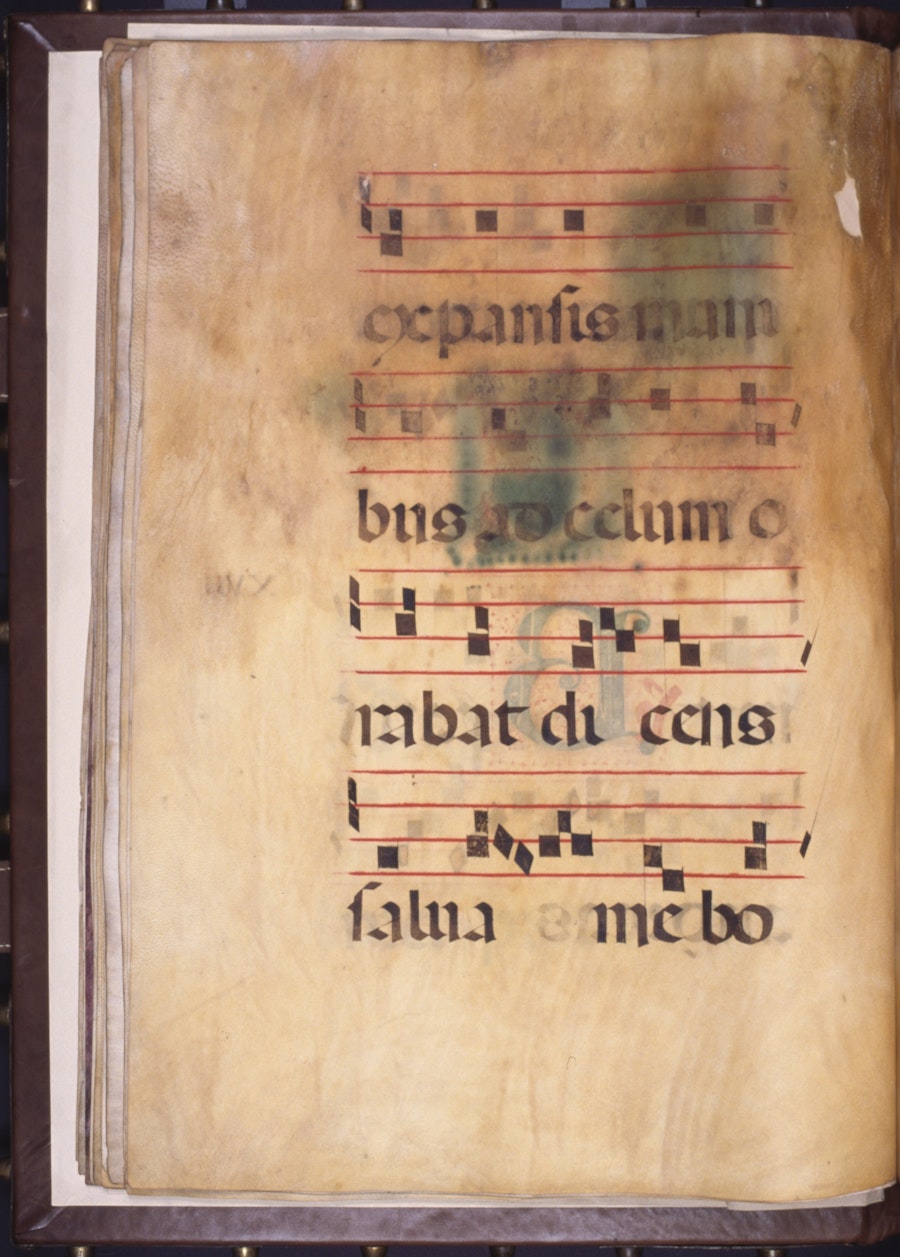 expansis mani
bus ad celum o
rabat di cens
salua me bo